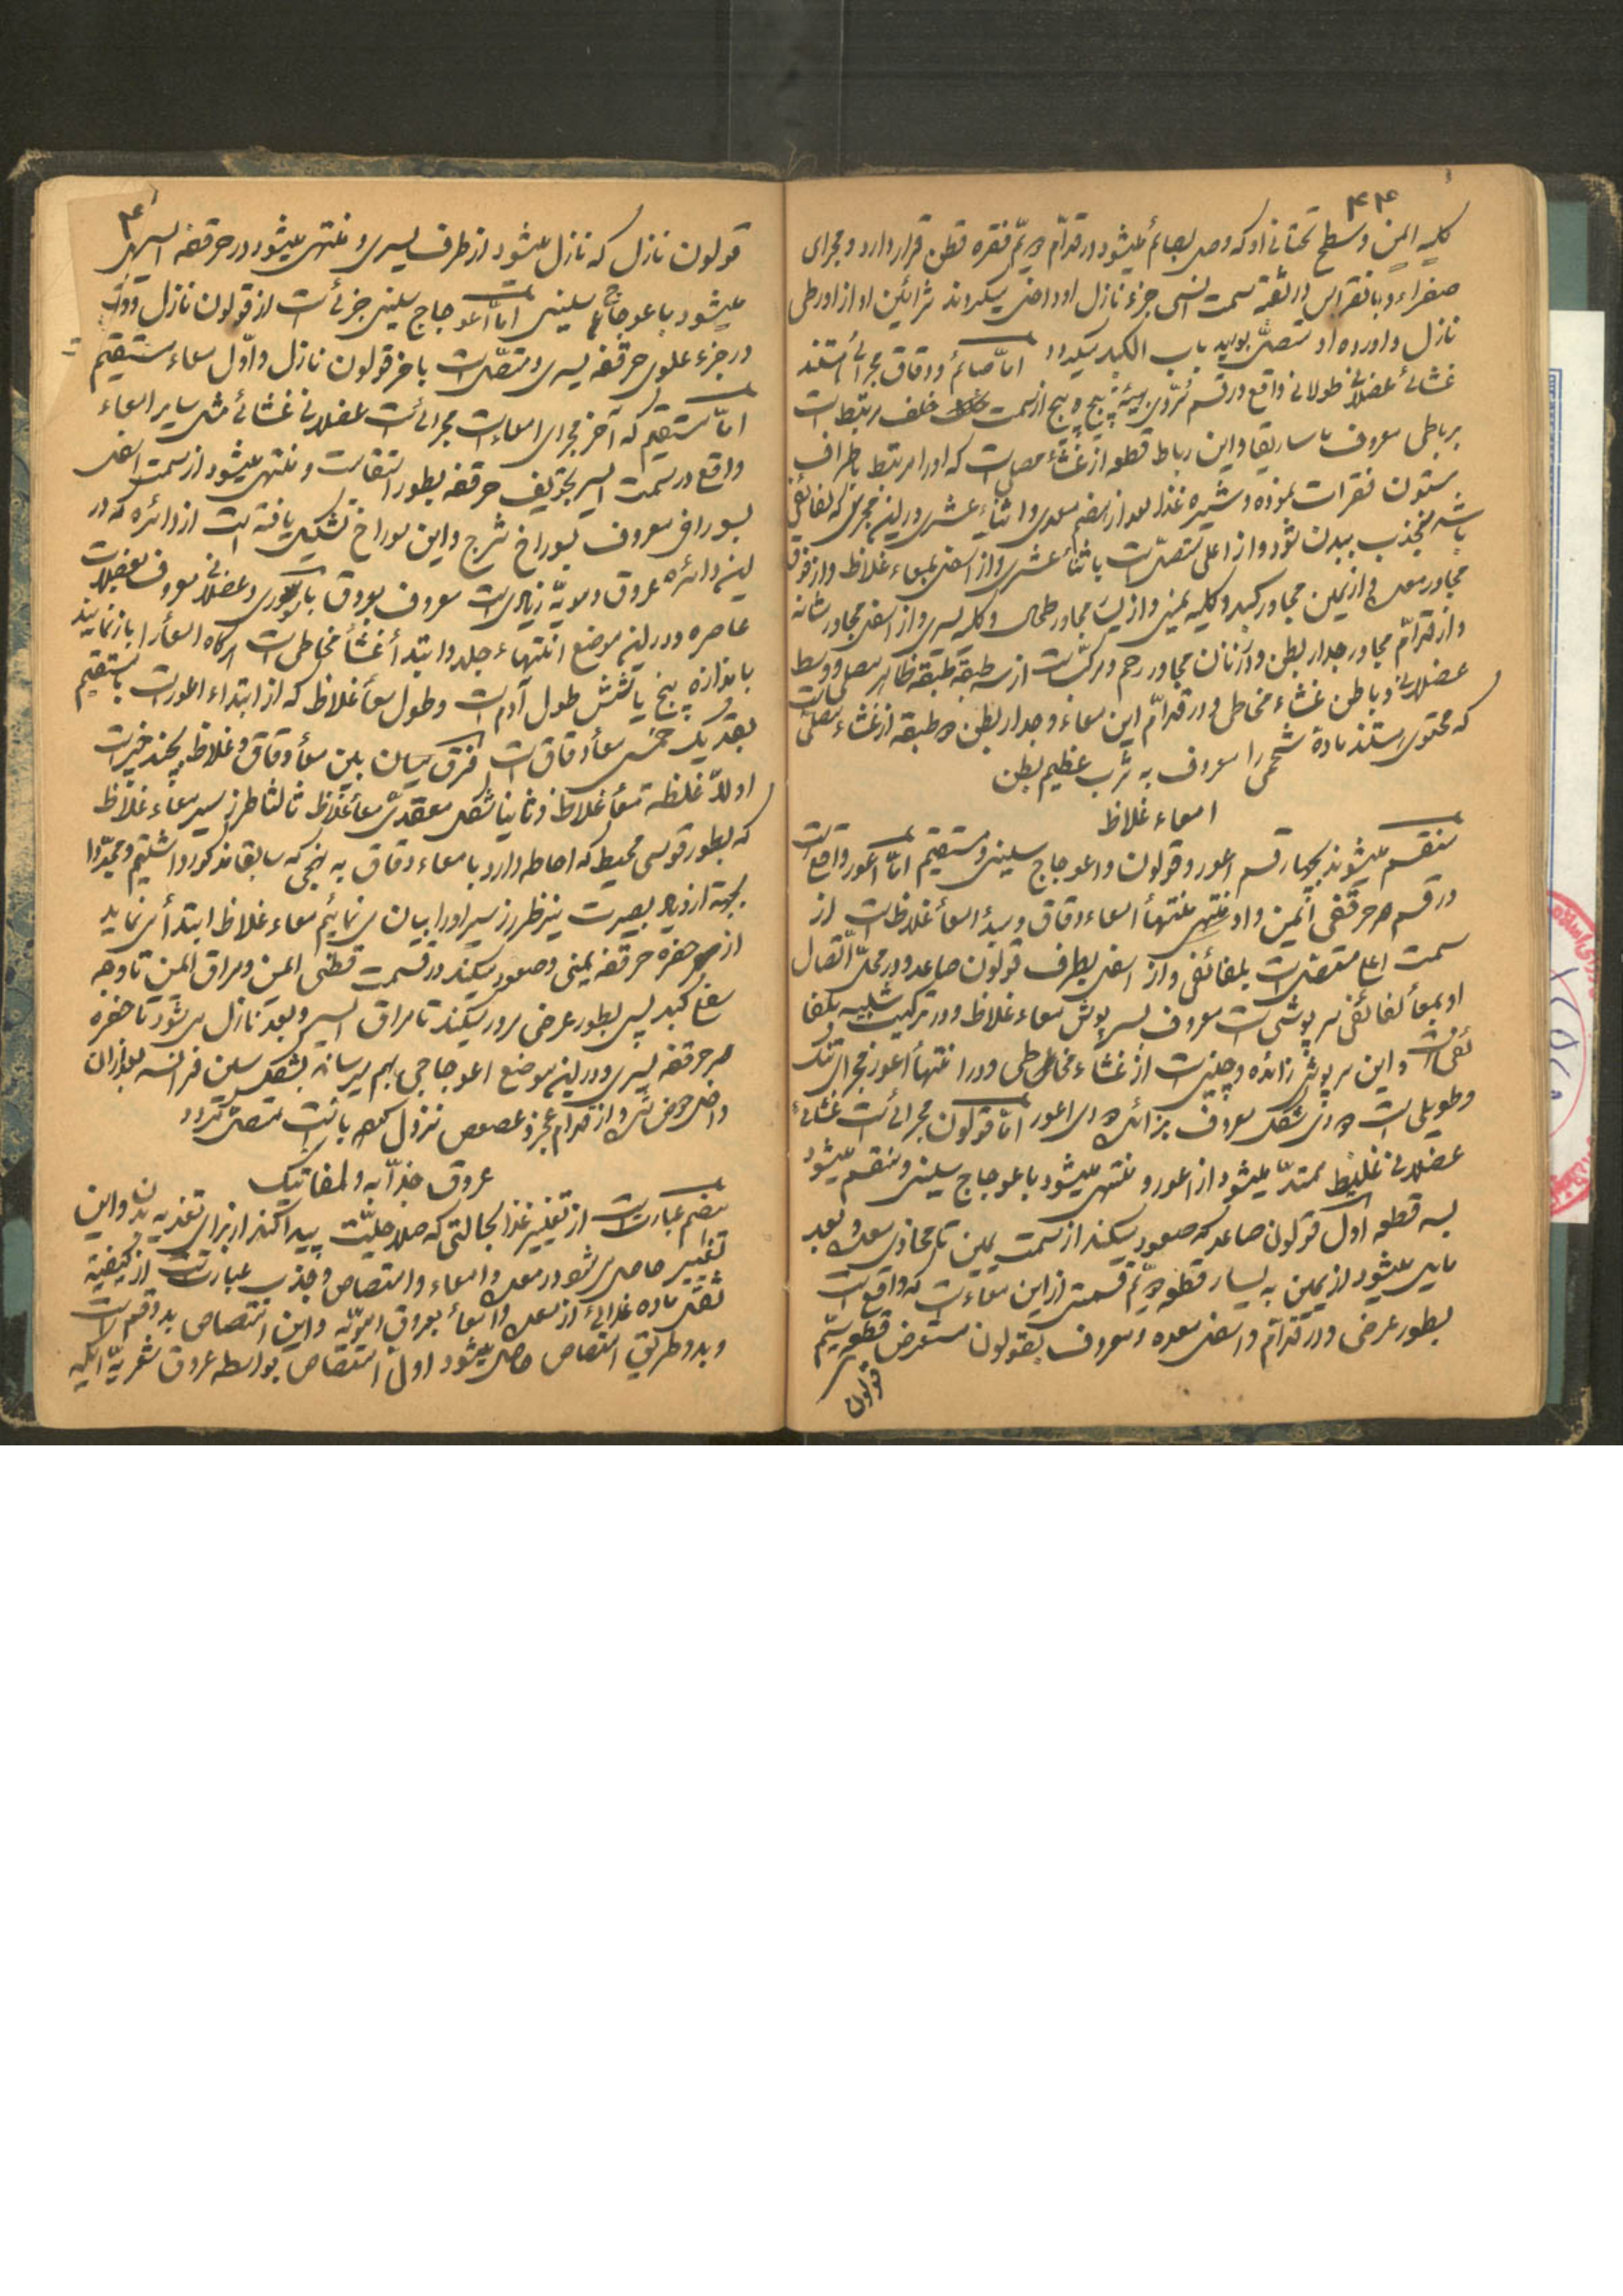 ۴۴
کلیه ایمن و سطح تحتانی او که وصل بصائم میشود در قدّام دویّم فقره قطن قرار دارد و مجرای
صفراء و بانقراس در ثقبه سمت انسی جزء نازل او داخل میکردند شرائین او از اورطی
نازل و اورده او متصل بورید باب الکبد میکردد امّا صائم و دقاق مجرائی هستند
غشائی عضلانی طولانی واقع در قسم سرّوی پیچ پیچ از سمت خلف مرتبط است
برباطی معروف ماساریقا و این رباط قطعه از غشاء مصلی است که او را مرتبط باطراف
ستون فقرات نموده و شیره غذا بعد از هضم معدی و اثناء عشری در این مجری که لفائفی
باشد منجذب ببدن شود و از اعلی متصل است باثناء عشری و از اسفل بمعاء غلاظ و از فوق
مجاور معده و از یمین مجاور کبد و کلیه یمنی و از یسار مجاور طحال و کلیه یسری و از اسفل مجاور مثانه
و از قدّام مجاور جدار بطن و در زنان مجاور رحم و مرکّب است از سه طبقه طبقه ظاهر مصلی و وسط
عضلانی و باطن غشاء مخاطی و در قدّام این معاء و جدار بطن دو طبقه از غشاء مصلی است
که محتوی هستند مادهٔ شحمی را معروف به ثرب عظیم بطن
امعاء غلاظ
منقسم میشوند بچهار قسم اعور و قولون و اعوجاج سینی و مستقیم امّا اعور واقع است
در قسم حرقفی ایمن و او منتهی منتهاء امعاء دقاق و مبدأ امعاء غلاظ است از
سمت اعلی متصل است بلفائفی و از اسفل بطرف قولون صاعد و در محل اتصال
او بمعاء لفائفی سرپوشی است معروف بسرپوش معاء غلاظ و در ترکیب شبیه بلفا
ئفی است و این سرپوش زائده و چینی است از غشاء مخاطی و در انتهاء اعور مجرای تنک
و طویلی است دودی شکل معروف بزائده دودی اعور امّا قولون مجرائی است غشائی
عضلانی غلیظ ممتدّ میشود از اعور و منتهی میشود باعوجاج سینی و منقسم میشود
بسه قطعه اول قولون صاعد که صعود میکند از سمت یمین تا محاذی معده و بعد
مایل میشود از یمین به یسار قطعه دویّم قسمتی از این معاء است که واقع است
بطور عرضی و در قدّام و اسفل معده و معروف بقولون مستعرض قطعه سیّم
قولون
قولون نازل که نازل میشود از طرف یسری و منتهی میشود در حرقفه ایسر
میشود باعوجاج سینی امّا اعوجاج سینی جزئی است از قولون نازل
در جزء علوی حرقفه یسری و متصل است باخر قولون نازل و اوّل معاء مستقیم
امّا مستقیم که آخر مجرای امعاء است مجرائی است عضلانی غشائی مثل سایر امعاء
واقع در سمت ایسر تجویف حرقفه بطور استقامت و منتهی میشود از سمت اسفل
بسوراخی معروف بسوراخ شرج و این سوراخ تشکیل یافته است از دائره که در
این دائره عروق دمویّه زیادی است معروف بعروق باسوری و عضلانی معروف بعضلات
عاصره و در این موضع انتهاء جلد و ابتداء غشاء مخاطی است هرکاه امعاء را باز نمایند
باندازه پنج یا شش طول آدم است و طول معاء غلاظ که از ابتداء اعور است بمستقیم
بقدر یک خمس معاء دقاق است فرق میان بین معاء دقاق و غلاظ بچند چیز است
اولاً غلظه معاء غلاظ و ثانیاً شکل معقدی معاء غلاظ ثالثا طرز سیر معاء غلاظ
که بطور قوسی محیط که احاطه دارد بامعاء دقاق به نهجی که سابقا مذکور داشتیم و مجدّداً
بجهة ازدیاد بصیرت نیز طرز سیر او را بیان می نمائیم معاء غلاظ ابتداء می نماید
از حفره حرقفه یمنی و صعود میکند در قسمت قطنی ایمن و مراق ایمن تا وجه
سفلی کبد پس بطور عرضی مرور میکند تا مراق ایسر و بعد نازل می شود تا حفره
حرقفه یسری و در این موضع اعوجاجی بهم میرساند بشکل سین فرانسه بعد از ان
داخل حوض شده و از قدام عجز و عصعص نزول بانتها متصل میکردد
عروق جذّابه و لمفاتیک
هضم عبارتست از تغییر غذا بحالتی که صلاحیّت پیدا کند از برای تغذیه بدن و این
تغییر حاصل می شود در معده و امعاء و امتصاص و جذب عبارتست از کیفیّة
نقل ماده غذائی از معده و امعاء بعروق دمویّه و این امتصاص بدو قسم است
و بدو طریق امتصاص حاصل میشود اول امتصاص بواسطه عروق شعریّه